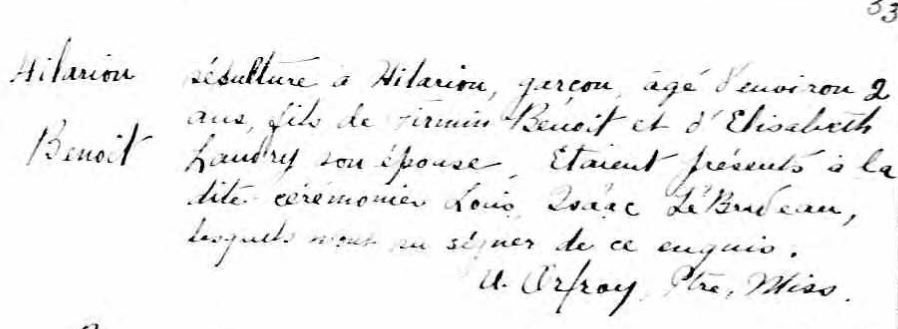 33
Hilarion sésulture à Hilarion, garçon, âgé d'environ 2
ans, fils de Firmin Benoit et d'Elisabeth
Benoit Landry son épouse, Etaient présents à la
dite cérémonie Louis, Isaac LeBrudeau,
lesquels n'ont su signer de ce enquis.
U. Orfroy, Ptre, Miss.